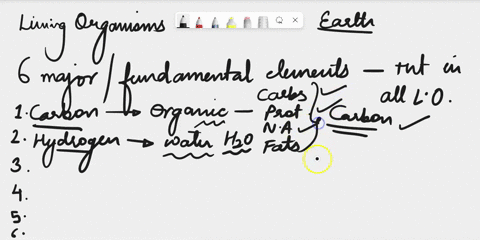 Living Organisms Earth
6 major / fundamental elements — in
all L.O.
1. Carbon → Organic — Carbs Prot N.A Fats Carbon
2. Hydrogen → water H2O
3.
4.
5.
6.